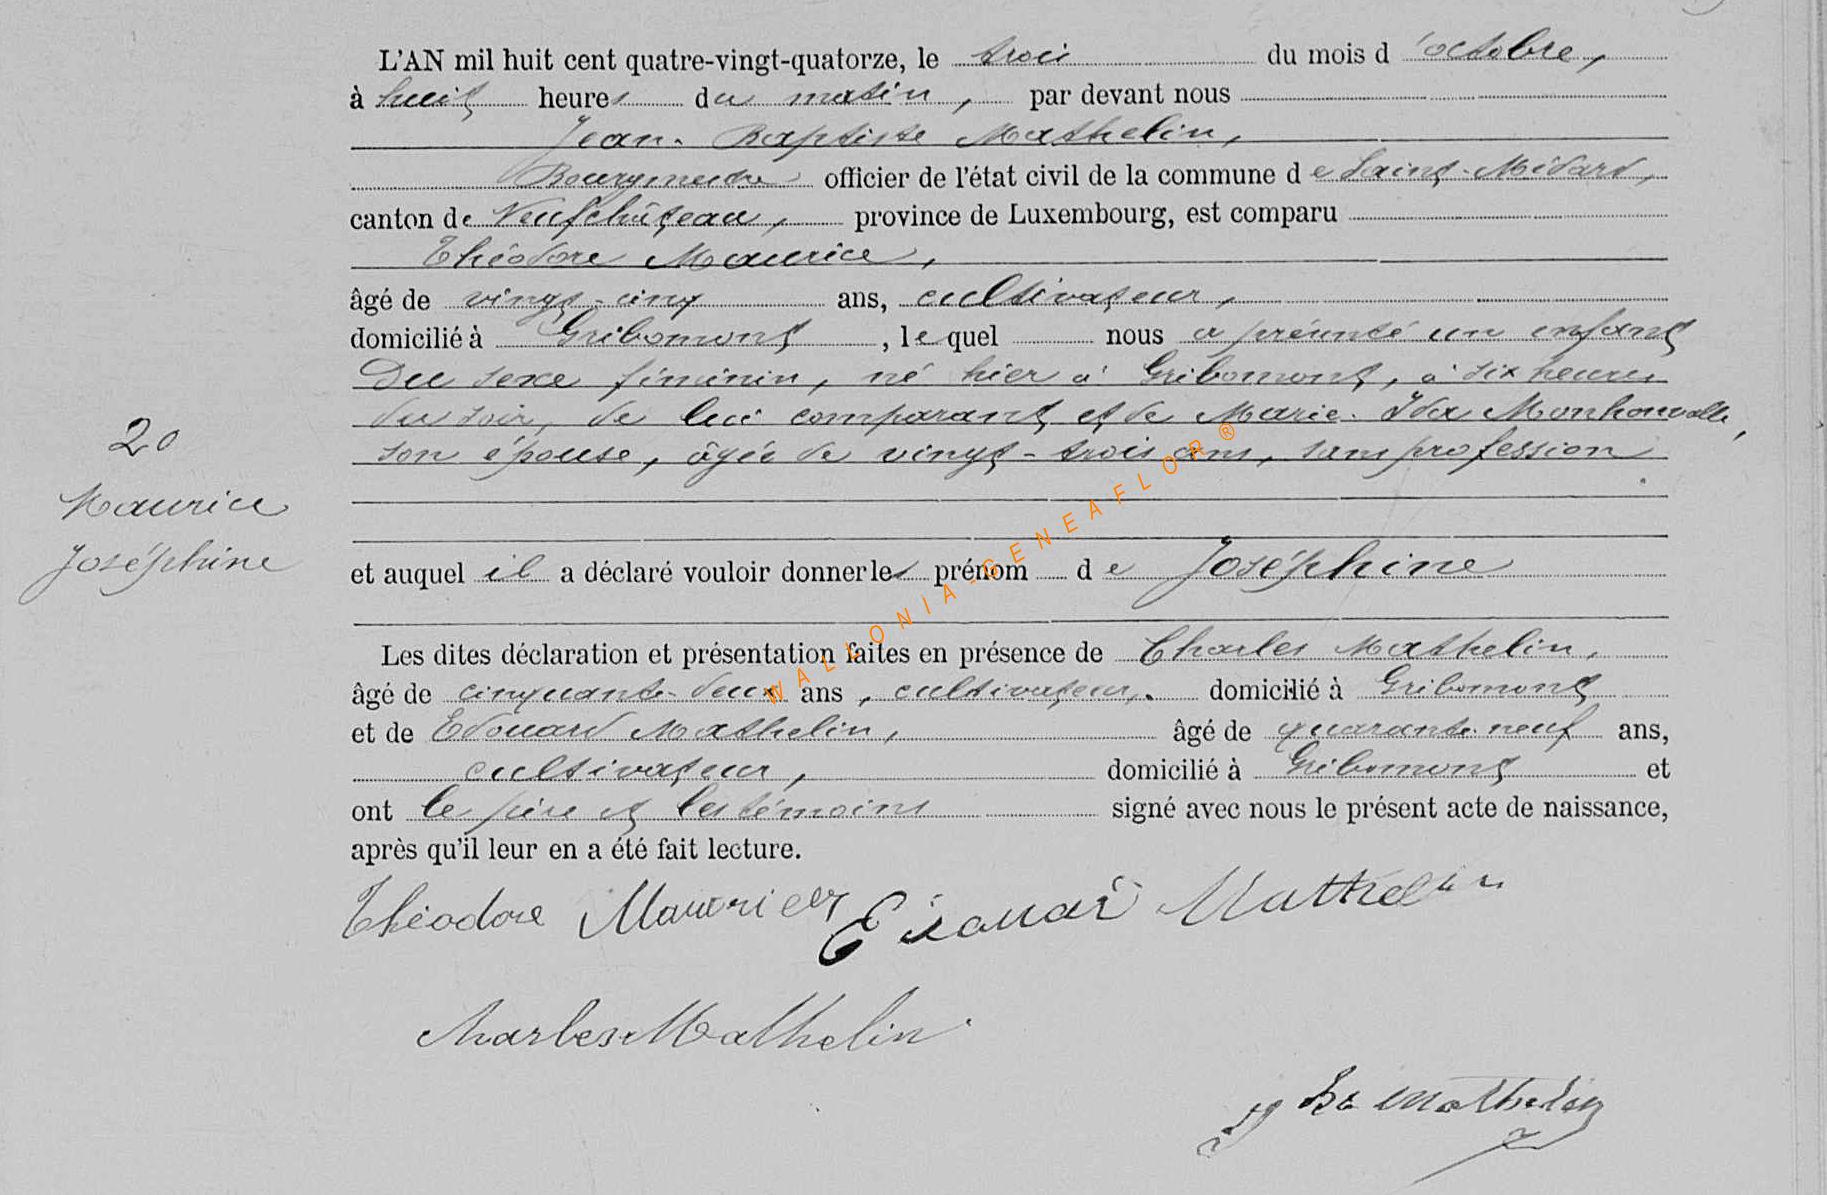 L'AN mil huit cent quatre-vingt-quatorze, le trois du mois d'octobre,
à huit heures du matin, par devant nous
Jean-Baptiste Mathelin,
Bourgmestre officier de l'état civil de la commune de Saint-Médard,
canton de Neufchâteau, province de Luxembourg, est comparu
Théodore Maurice,
âgé de vingt-cinq ans, cultivateur,
domicilié à Gribomont, lequel nous a présenté un enfant
du sexe féminin, né hier à Gribomont, à six heures
du soir, de lui comparant et de Marie-Ida Monhonvalle,
son épouse, âgée de vingt-trois ans, sans profession
et auquel il a déclaré vouloir donner les prénom de Joséphine
Les dites déclaration et présentation faites en présence de Charles Mathelin,
âgé de cinquante-deux ans, cultivateur, domicilié à Gribomont
et de Edouard Mathelin, âgé de quarante-neuf ans,
cultivateur, domicilié à Gribomont et
ont le père et les témoins signé avec nous le présent acte de naissance,
après qu'il leur en a été fait lecture.
20
Maurice
Joséphine
Théodore Maurice Edouard Mathelin
Charles Mathelin
J Bte Mathelin
WALLONIA-GENEAFLOR ®